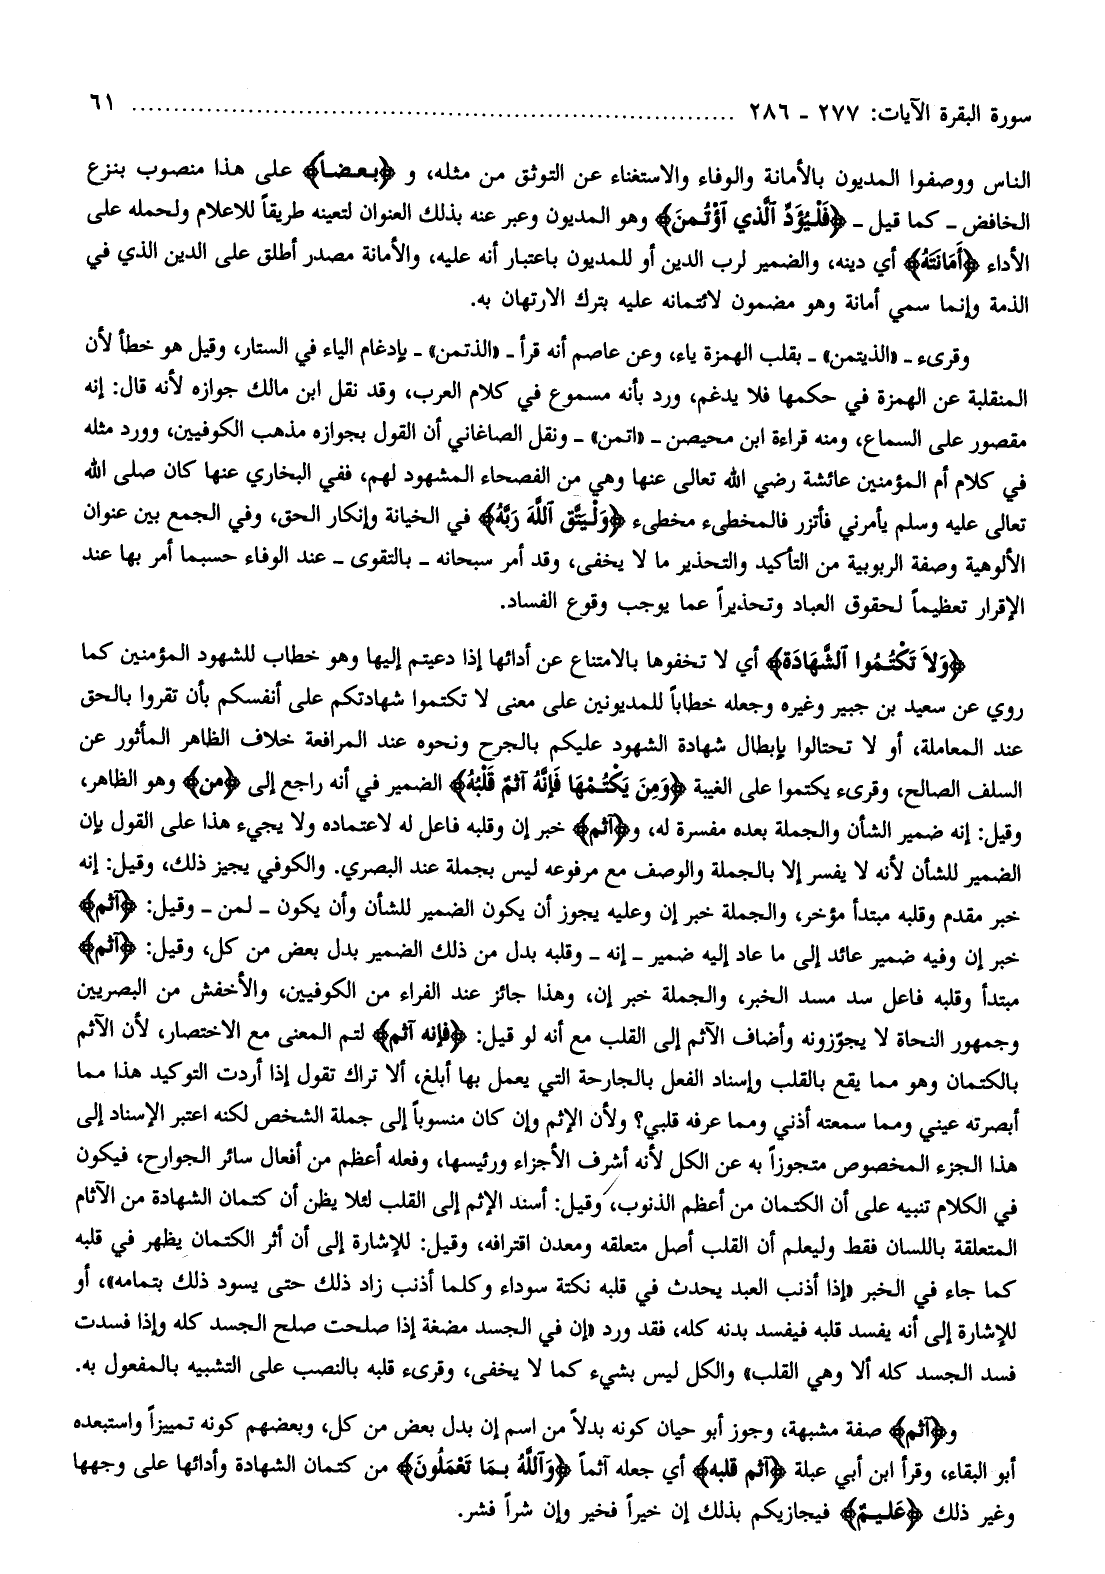 سورة البقرة الآيات: ٢٧٧ - ٢٨٦ ........................................................................ ٦١
الناس ووصفوا المديون بالأمانة والوفاء والاستغناء عن التوثق من مثله، و ﴿بعضا﴾ على هذا منصوب بنزع
الخافض ـ كما قيل ـ ﴿فَلْيُؤَدِّ ٱلَّذي ٱؤْتُمنَ﴾ وهو المديون وعبر عنه بذلك العنوان لتعينه طريقاً للاعلام ولحمله على
الأداء ﴿أَمَانَتَهُ﴾ أي دينه، والضمير لرب الدين أو للمديون باعتبار أنه عليه، والأمانة مصدر أطلق على الدين الذي في
الذمة وإنما سمي أمانة وهو مضمون لائتمانه عليه بترك الارتهان به.
وقرىء ـ «الذيتمن» ـ بقلب الهمزة ياء، وعن عاصم أنه قرأ ـ «الذتمن» ـ بإدغام الياء في الستار، وقيل هو خطأ لأن
المنقلبة عن الهمزة في حكمها فلا يدغم، ورد بأنه مسموع في كلام العرب، وقد نقل ابن مالك جوازه لأنه قال: إنه
مقصور على السماع، ومنه قراءة ابن محيصن ـ «اتمن» ـ ونقل الصاغاني أن القول بجوازه مذهب الكوفيين، وورد مثله
في كلام أم المؤمنين عائشة رضي الله تعالى عنها وهي من الفصحاء المشهود لهم، ففي البخاري عنها كان صلى الله
تعالى عليه وسلم يأمرني فأتزر فالمخطىء مخطىء ﴿وَلْيَتَّق ٱللَّهَ رَبَّهُ﴾ في الخيانة وإنكار الحق، وفي الجمع بين عنوان
الألوهية وصفة الربوبية من التأكيد والتحذير ما لا يخفى، وقد أمر سبحانه ـ بالتقوى ـ عند الوفاء حسبما أمر بها عند
الإقرار تعظيماً لحقوق العباد وتحذيراً عما يوجب وقوع الفساد.
﴿وَلاَ تَكْتُمُوا ٱلشَّهَادَة﴾ أي لا تخفوها بالامتناع عن أدائها إذا دعيتم إليها وهو خطاب للشهود المؤمنين كما
روي عن سعيد بن جبير وغيره وجعله خطاباً للمديونين على معنى لا تكتموا شهادتكم على أنفسكم بأن تقروا بالحق
عند المعاملة، أو لا تحتالوا بإبطال شهادة الشهود عليكم بالجرح ونحوه عند المرافعة خلاف الظاهر المأثور عن
السلف الصالح، وقرىء يكتموا على الغيبة ﴿وَمِنَ يَكْتُمْهَا فَإِنَّهُ آثمٌ قَلْبُهُ﴾ الضمير في أنه راجع إلى ﴿من﴾ وهو الظاهر،
وقيل: إنه ضمير الشأن والجملة بعده مفسرة له، و﴿آثم﴾ خبر إن وقلبه فاعل له لاعتماده ولا يجيء هذا على القول بإن
الضمير للشأن لأنه لا يفسر إلا بالجملة والوصف مع مرفوعه ليس بجملة عند البصري. والكوفي يجيز ذلك، وقيل: إنه
خبر مقدم وقلبه مبتدأ مؤخر، والجملة خبر إن وعليه يجوز أن يكون الضمير للشأن وأن يكون ـ لمن ـ وقيل: ﴿آثم﴾
خبر إن وفيه ضمير عائد إلى ما عاد إليه ضمير ـ إنه ـ وقلبه بدل من ذلك الضمير بدل بعض من كل، وقيل: ﴿آثم﴾
مبتدأ وقلبه فاعل سد مسد الخبر، والجملة خبر إن، وهذا جائز عند الفراء من الكوفيين، والأخفش من البصريين
وجمهور النحاة لا يجوّزونه وأضاف الآثم إلى القلب مع أنه لو قيل: ﴿فإنه آثم﴾ لتم المعنى مع الاختصار، لأن الآثم
بالكتمان وهو مما يقع بالقلب وإسناد الفعل بالجارحة التي يعمل بها أبلغ، ألا تراك تقول إذا أردت التوكيد هذا مما
أبصرته عيني ومما سمعته أذني ومما عرفه قلبي؟ ولأن الإثم وإن كان منسوباً إلى جملة الشخص لكنه اعتبر الإسناد إلى
هذا الجزء المخصوص متجوزاً به عن الكل لأنه أشرف الأجزاء ورئيسها، وفعله أعظم من أفعال سائر الجوارح، فيكون
في الكلام تنبيه على أن الكتمان من أعظم الذنوب، وقيل: أسند الإثم إلى القلب لئلا يظن أن كتمان الشهادة من الآثام
المتعلقة باللسان فقط وليعلم أن القلب أصل متعلقه ومعدن اقترافه، وقيل: للإشارة إلى أن أثر الكتمان يظهر في قلبه
كما جاء في الخبر «إذا أذنب العبد يحدث في قلبه نكتة سوداء وكلما أذنب زاد ذلك حتى يسود ذلك بتمامه»، أو
للإشارة إلى أنه يفسد قلبه فيفسد بدنه كله، فقد ورد «إن في الجسد مضغة إذا صلحت صلح الجسد كله وإذا فسدت
فسد الجسد كله ألا وهي القلب» والكل ليس بشيء كما لا يخفى، وقرىء قلبه بالنصب على التشبيه بالمفعول به.
و﴿آثم﴾ صفة مشبهة، وجوز أبو حيان كونه بدلاً من اسم إن بدل بعض من كل، وبعضهم كونه تمييزاً واستبعده
أبو البقاء، وقرأ ابن أبي عبلة ﴿آثم قلبه﴾ أي جعله آثماً ﴿وَٱللَّهُ بمَا تَعْمَلُونَ﴾ من كتمان الشهادة وأدائها على وجهها
وغير ذلك ﴿عَليمٌ﴾ فيجازيكم بذلك إن خيراً فخير وإن شراً فشر.